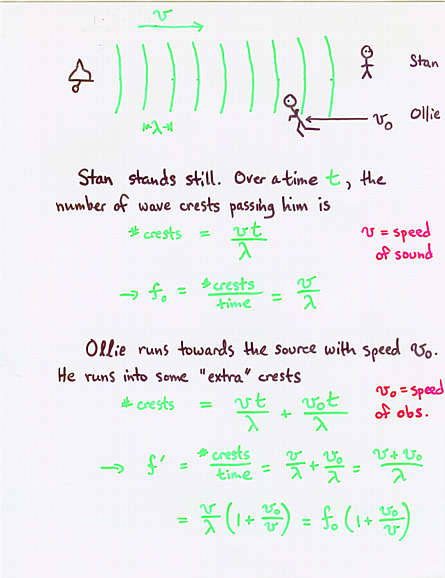 v
Stan
Ollie
v₀
λ
Stan stands still. Over a time t, the
number of wave crests passing him is
# crests = vt/λ
v = speed
of sound
→ f₀ = # crests/time = v/λ
Ollie runs towards the source with speed v₀.
He runs into some "extra" crests
# crests = vt/λ + v₀t/λ
v₀ = speed
of obs.
→ f' = # crests/time = v/λ + v₀/λ = v + v₀/λ
= v/λ (1 + v₀/v) = f₀ (1 + v₀/v)